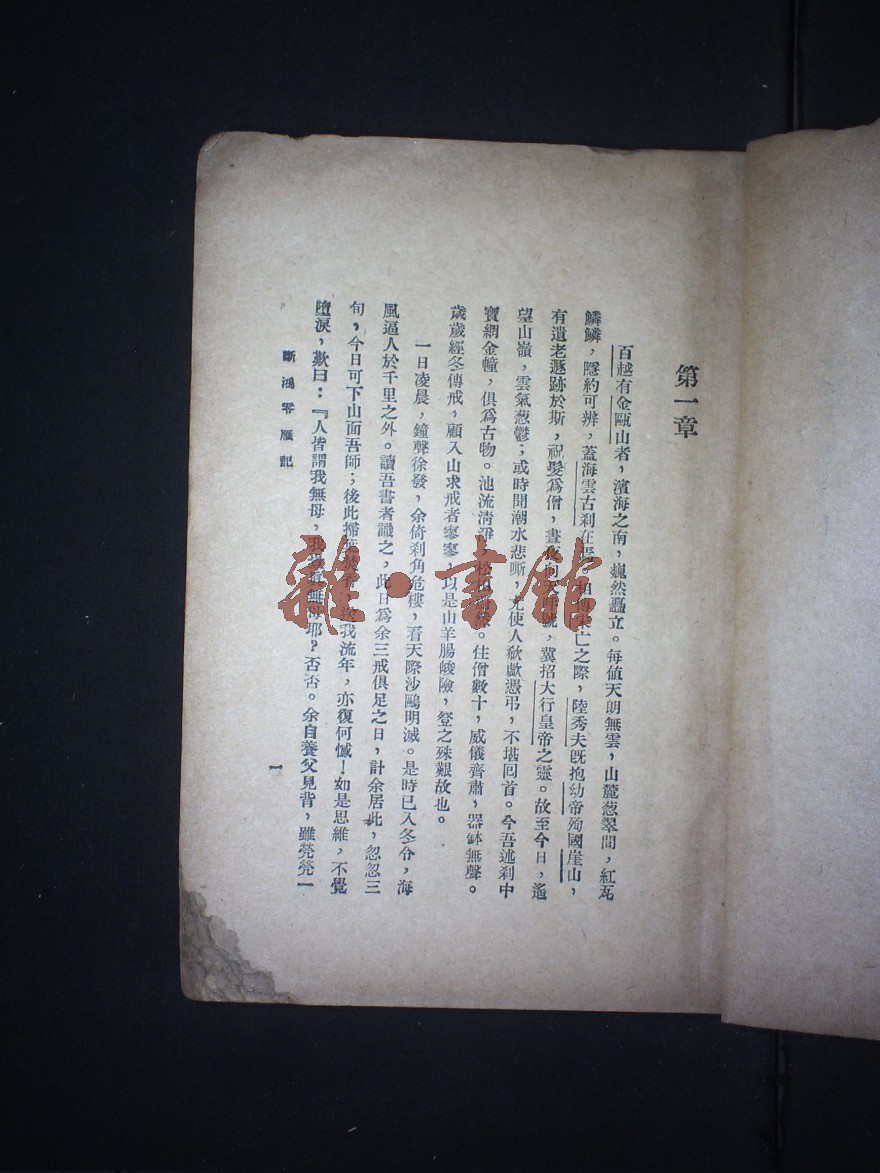 第一章
百越有金甌山者，濱海之南，巍然矗立。每値天朗無雲，山麓葱翠間，紅瓦
鱗鱗，隱約可辨，蓋海雲古刹在焉。相傳宋亡之際，陸秀夫旣抱幼帝殉國崖山，
有遺老遯跡於斯，祝髮爲僧，晝夜向天呼號，冀招大行皇帝之靈。故至今日，遙
望山嶺，雲氣葱鬱；或時聞潮水悲嘶，尤使人欷歔憑弔，不堪回首。今吾述刹中
寶網金幢，俱爲古物。池流清淨，松柏蔚然。住僧數十，威儀齊肅，器缽無聲。
歲歲經冬傳戒，顧入山求戒者寥寥，以是山羊腸峻險，登之殊艱故也。
一日凌晨，鐘聲徐發，余倚刹角危樓，看天際沙鷗明滅。是時已入冬令，海
風逼人於千里之外。讀吾書者識之，此日爲余三戒俱足之日，計余居此，忽忽三
旬，今日可下山面吾師；後此掃葉焚香，送我流年，亦復何憾！如是思維，不覺
墮淚，歎曰：『人皆謂我無母，我豈眞無母耶？否否。余自養父見背，雖煢煢一
斷鴻零雁記
一
雜·書館